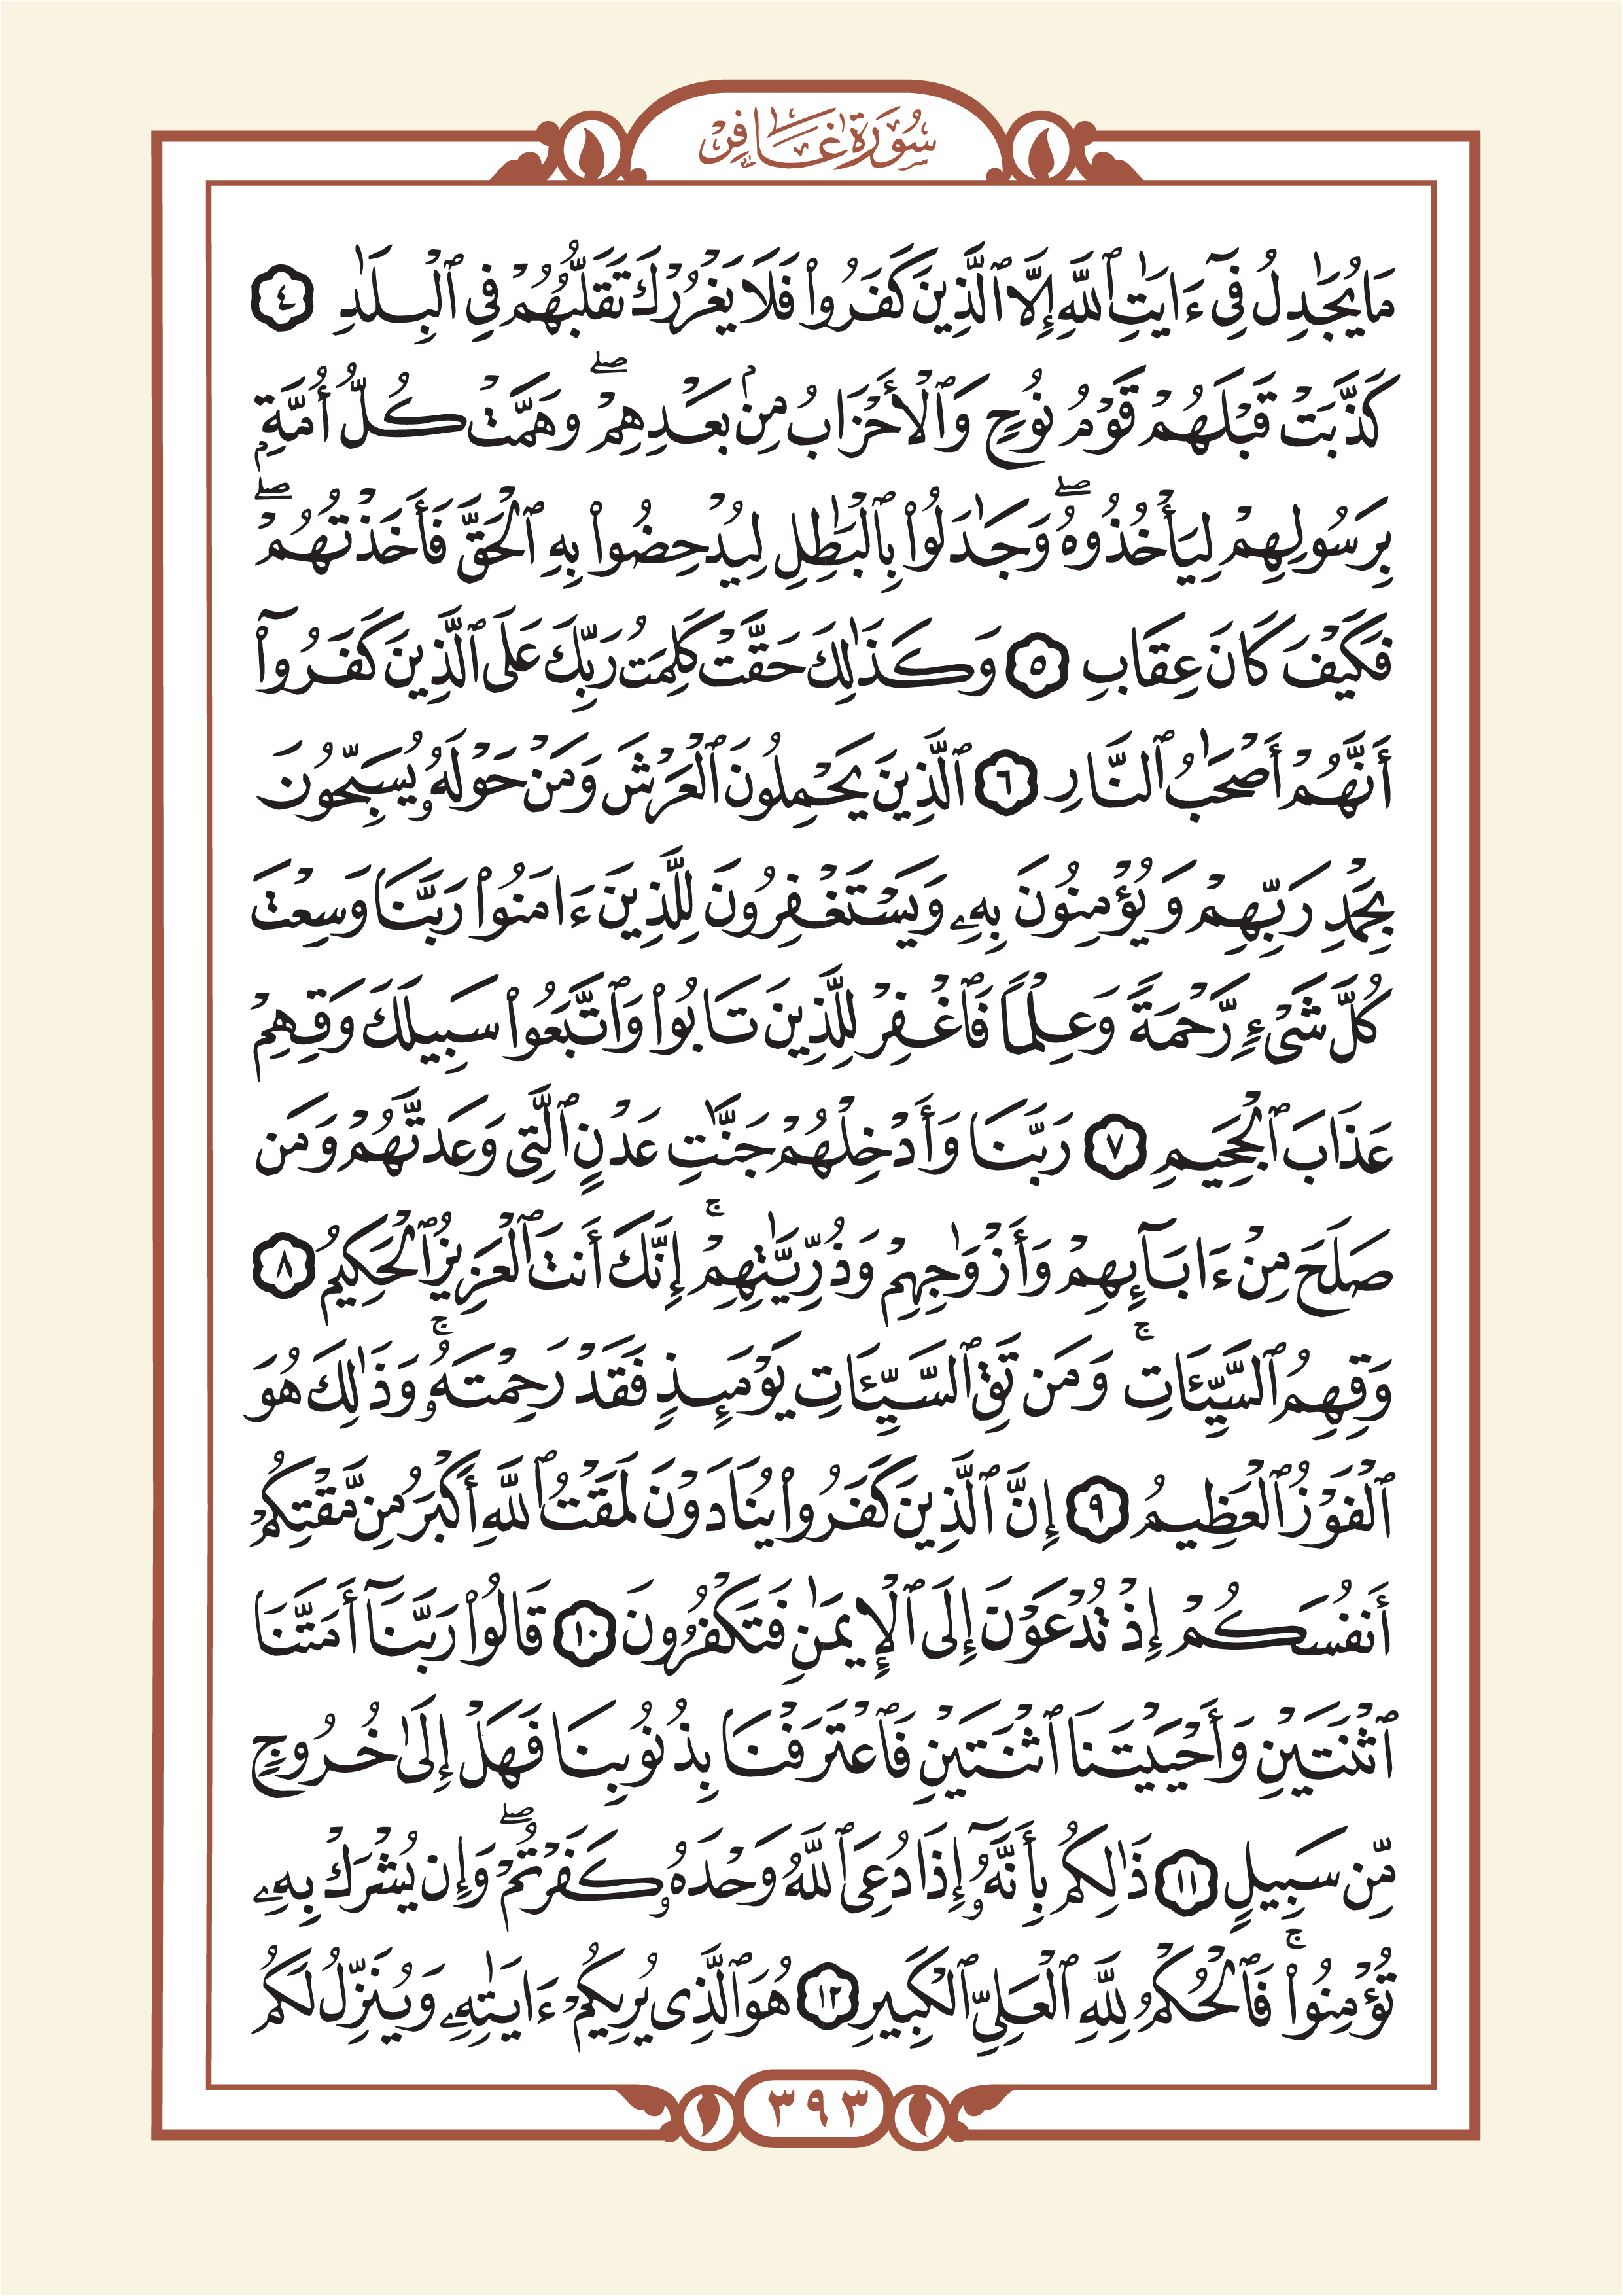 سُورَةُ غَافِرٍ
مَا يُجَٰدِلُ فِىٓ ءَايَٰتِ ٱللَّهِ إِلَّا ٱلَّذِينَ كَفَرُوا۟ فَلَا يَغْرُرْكَ تَقَلُّبُهُمْ فِي ٱلْبِلَٰدِ ٤
كَذَّبَتْ قَبْلَهُمْ قَوْمُ نُوحٍ وَٱلْأَحْزَابُ مِنۢ بَعْدِهِمْ ۖ وَهَمَّتْ كُلُّ أُمَّةٍۭ
بِرَسُولِهِمْ لِيَأْخُذُوهُ ۖ وَجَٰدَلُوا۟ بِٱلْبَٰطِلِ لِيُدْحِضُوا۟ بِهِ ٱلْحَقَّ فَأَخَذْتُهُمْ ۖ
فَكَيْفَ كَانَ عِقَابِ ٥ وَكَذَٰلِكَ حَقَّتْ كَلِمَتُ رَبِّكَ عَلَى ٱلَّذِينَ كَفَرُوٓا۟
أَنَّهُمْ أَصْحَٰبُ ٱلنَّارِ ٦ ٱلَّذِينَ يَحْمِلُونَ ٱلْعَرْشَ وَمَنْ حَوْلَهُۥ يُسَبِّحُونَ
بِحَمْدِ رَبِّهِمْ وَيُؤْمِنُونَ بِهِۦ وَيَسْتَغْفِرُونَ لِلَّذِينَ ءَامَنُوا۟ رَبَّنَا وَسِعْتَ
كُلَّ شَىْءٍ رَّحْمَةً وَعِلْمًا فَٱغْفِرْ لِلَّذِينَ تَابُوا۟ وَٱتَّبَعُوا۟ سَبِيلَكَ وَقِهِمْ
عَذَابَ ٱلْجَحِيمِ ٧ رَبَّنَا وَأَدْخِلْهُمْ جَنَّٰتِ عَدْنٍ ٱلَّتِى وَعَدتَّهُمْ وَمَن
صَلَحَ مِنْ ءَابَآئِهِمْ وَأَزْوَٰجِهِمْ وَذُرِّيَّٰتِهِمْ ۚ إِنَّكَ أَنتَ ٱلْعَزِيزُ ٱلْحَكِيمُ ٨
وَقِهِمُ ٱلسَّيِّـَٔاتِ ۚ وَمَن تَقِ ٱلسَّيِّـَٔاتِ يَوْمَئِذٍ فَقَدْ رَحِمْتَهُۥ ۚ وَذَٰلِكَ هُوَ
ٱلْفَوْزُ ٱلْعَظِيمُ ٩ إِنَّ ٱلَّذِينَ كَفَرُوا۟ يُنَادَوْنَ لَمَقْتُ ٱللَّهِ أَكْبَرُ مِن مَّقْتِكُمْ
أَنفُسَكُمْ إِذْ تُدْعَوْنَ إِلَى ٱلْإِيمَٰنِ فَتَكْفُرُونَ ١٠ قَالُوا۟ رَبَّنَآ أَمَتَّنَا
ٱثْنَتَيْنِ وَأَحْيَيْتَنَا ٱثْنَتَيْنِ فَٱعْتَرَفْنَا بِذُنُوبِنَا فَهَلْ إِلَىٰ خُرُوجٍ
مِّن سَبِيلٍ ١١ ذَٰلِكُم بِأَنَّهُۥٓ إِذَا دُعِىَ ٱللَّهُ وَحْدَهُۥ كَفَرْتُمْ ۖ وَإِن يُشْرَكْ بِهِۦ
تُؤْمِنُوا۟ ۚ فَٱلْحُكْمُ لِلَّهِ ٱلْعَلِىِّ ٱلْكَبِيرِ ١٢ هُوَ ٱلَّذِى يُرِيكُمْ ءَايَٰتِهِۦ وَيُنَزِّلُ لَكُم
٣٩٣